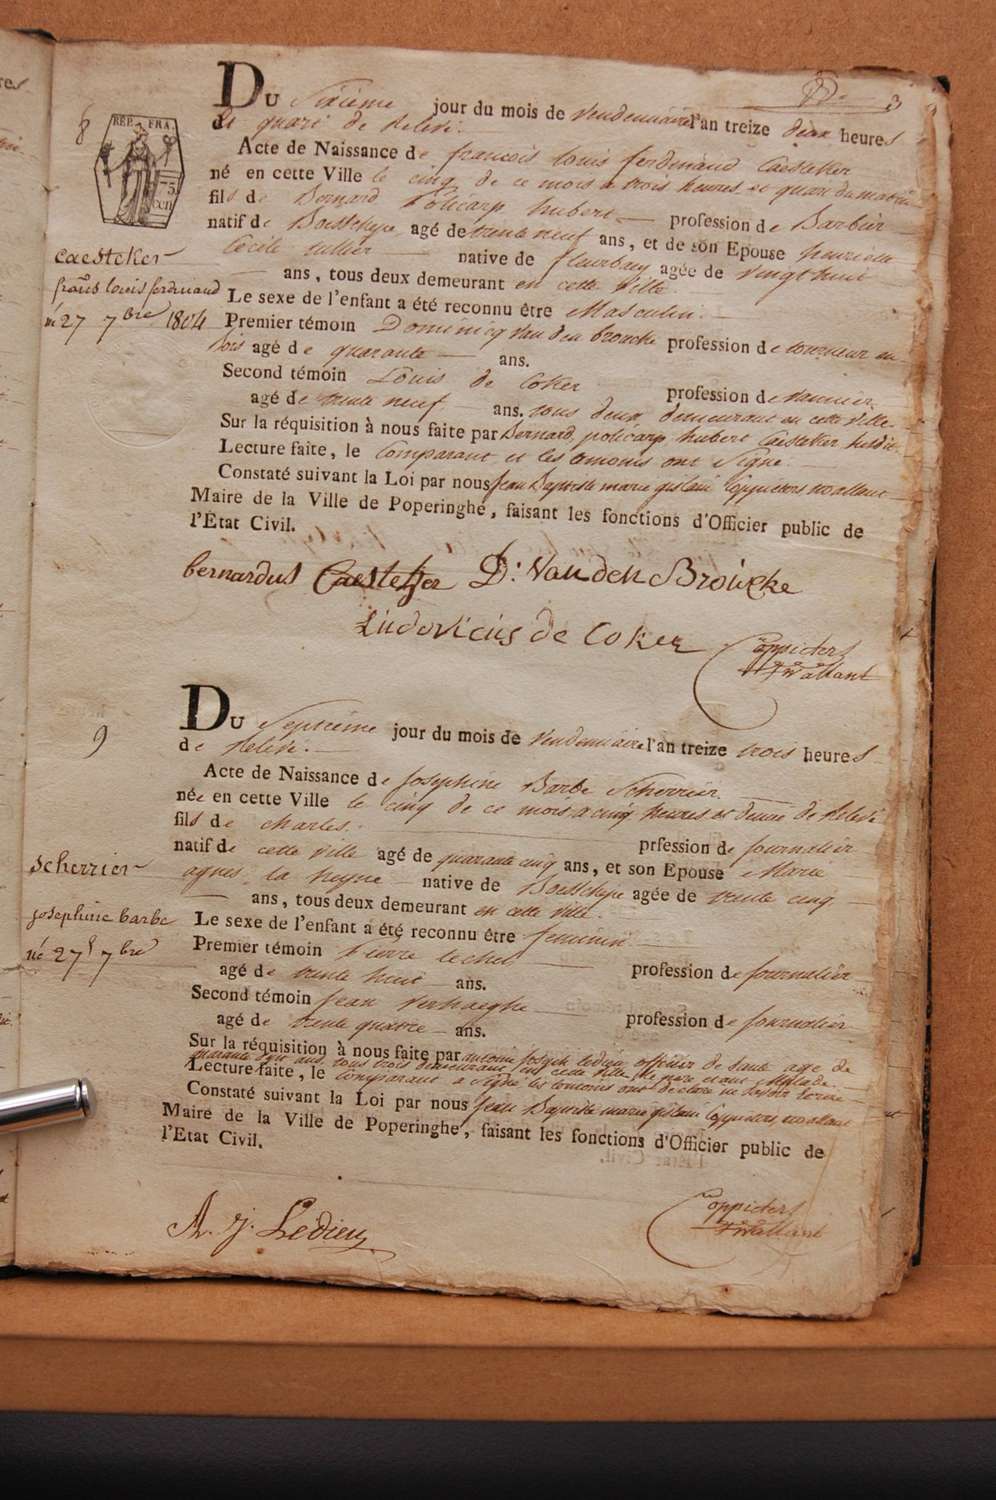 3
8
REP. FRA.
75
CaesteKer
franis louis ferdinand
né 27 7bre 1804
DU Sixieme jour du mois de vendemiaire l'an treize deux heures
et quart de relevé.
Acte de Naissance de francois louis ferdinand CaesteKer
né en cette Ville le cinq de ce mois a trois heures et quart du matin
fils de Bernard Policarp hubert profession de Barbier
natif de Boesschepe agé de trente neuf ans, et de son Epouse
Cecile native de fleurbaey agée de vingt huit
ans, tous deux demeurant en cette Ville.
Le sexe de l'enfant a été reconnu être Masculin.
Premier témoin Dominicq Van den broucke profession de tourneur en
bois agé de quarante ans.
Second témoin Louis de CoKer profession de vannier
agé de trente neuf ans. tous deux demeurant en cette Ville
Sur la réquisition à nous faite par Bernard policarp hubert CaesteKer susdit.
Lecture faite, le Comparant et les temoins ont Signé.
Constaté suivant la Loi par nous Jean Baptiste marie gislain Coppieters wallant
Maire de la Ville de Poperinghe, faisant les fonctions d'Officier public de
l'Etat Civil.
bernardus CaesteKer D: Van den Broucke
Ludovicus de CoKer
Coppieters
wallant
9
Scherrier
josephine barbe
né 27 7bre
DU Septieme jour du mois de Vendemiaire l'an treize trois heures
de relevé.
Acte de Naissance de Josephine Barbe Scherrier
née en cette Ville le cinq de ce mois a cinq heures et demie de relevé
fils de Charles. prfession de journalier
natif de cette Ville agé de quarante cinq ans, et son Epouse Marie
agnes la heyne native de Boesschepe agée de trente cinq
ans, tous deux demeurant en cette ville.
Le sexe de l'enfant a été reconnu être feminin
Premier témoin Pierre profession de journalier
agé de trente huit ans.
Second témoin Jean Verhaeghe profession de journalier
agé de trente quatre ans.
Sur la réquisition à nous faite par antoine Joseph Ledieu officier de santé agé de
quarante huit ans, tous trois demeurant en cette Ville, le pere etant Malade
Lecture faite, le Comparant a signé les temoins ont declaré ne savoir ecrire
Constaté suivant la Loi par nous Jean Baptiste marie gislain Coppieters wallant
Maire de la Ville de Poperinghe, faisant les fonctions d'Officier public de
l'Etat Civil.
A. J. Ledieu
Coppieters
wallant